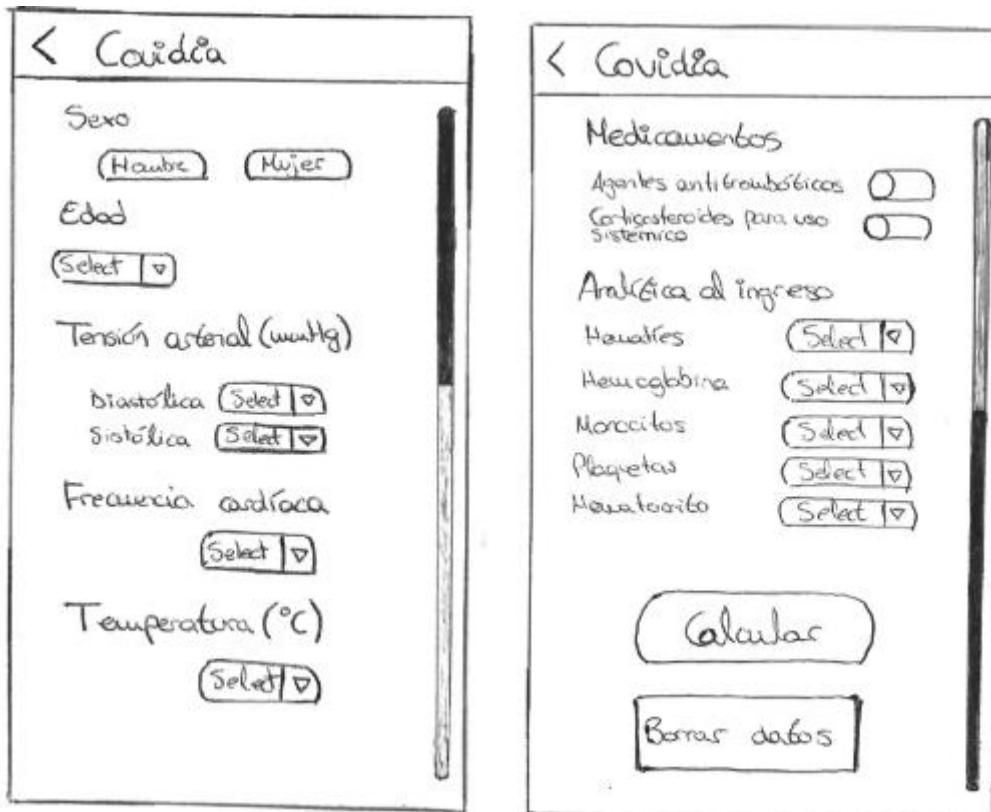 < Covidia
Sexo
Hombre Mujer
Edad
Select
Tensión arterial (mmHg)
Diastólica Select
Sistólica Select
Frecuencia cardíaca
Select
Temperatura (°C)
Select
< Covidia
Medicamentos
Agentes antitrombóticos
Corticosteroides para uso
sistémico
Analítica al ingreso
Hematíes Select
Hemoglobina Select
Monocitos Select
Plaquetas Select
Hematocrito Select
Calcular
Borrar datos